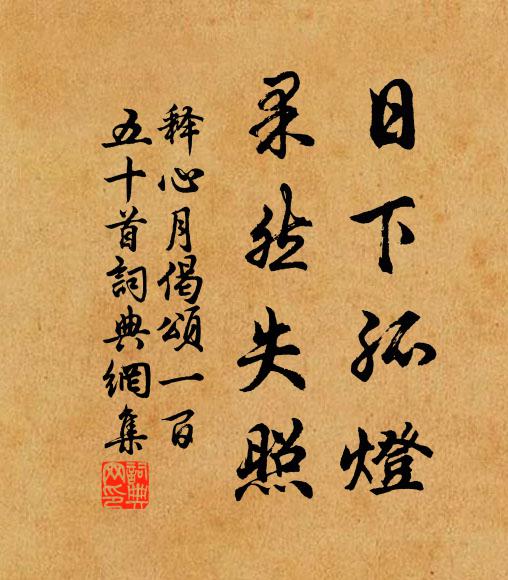 日下孤燈
果然失照
释心月偈頌一百
五十首詞典網集
詞典网印